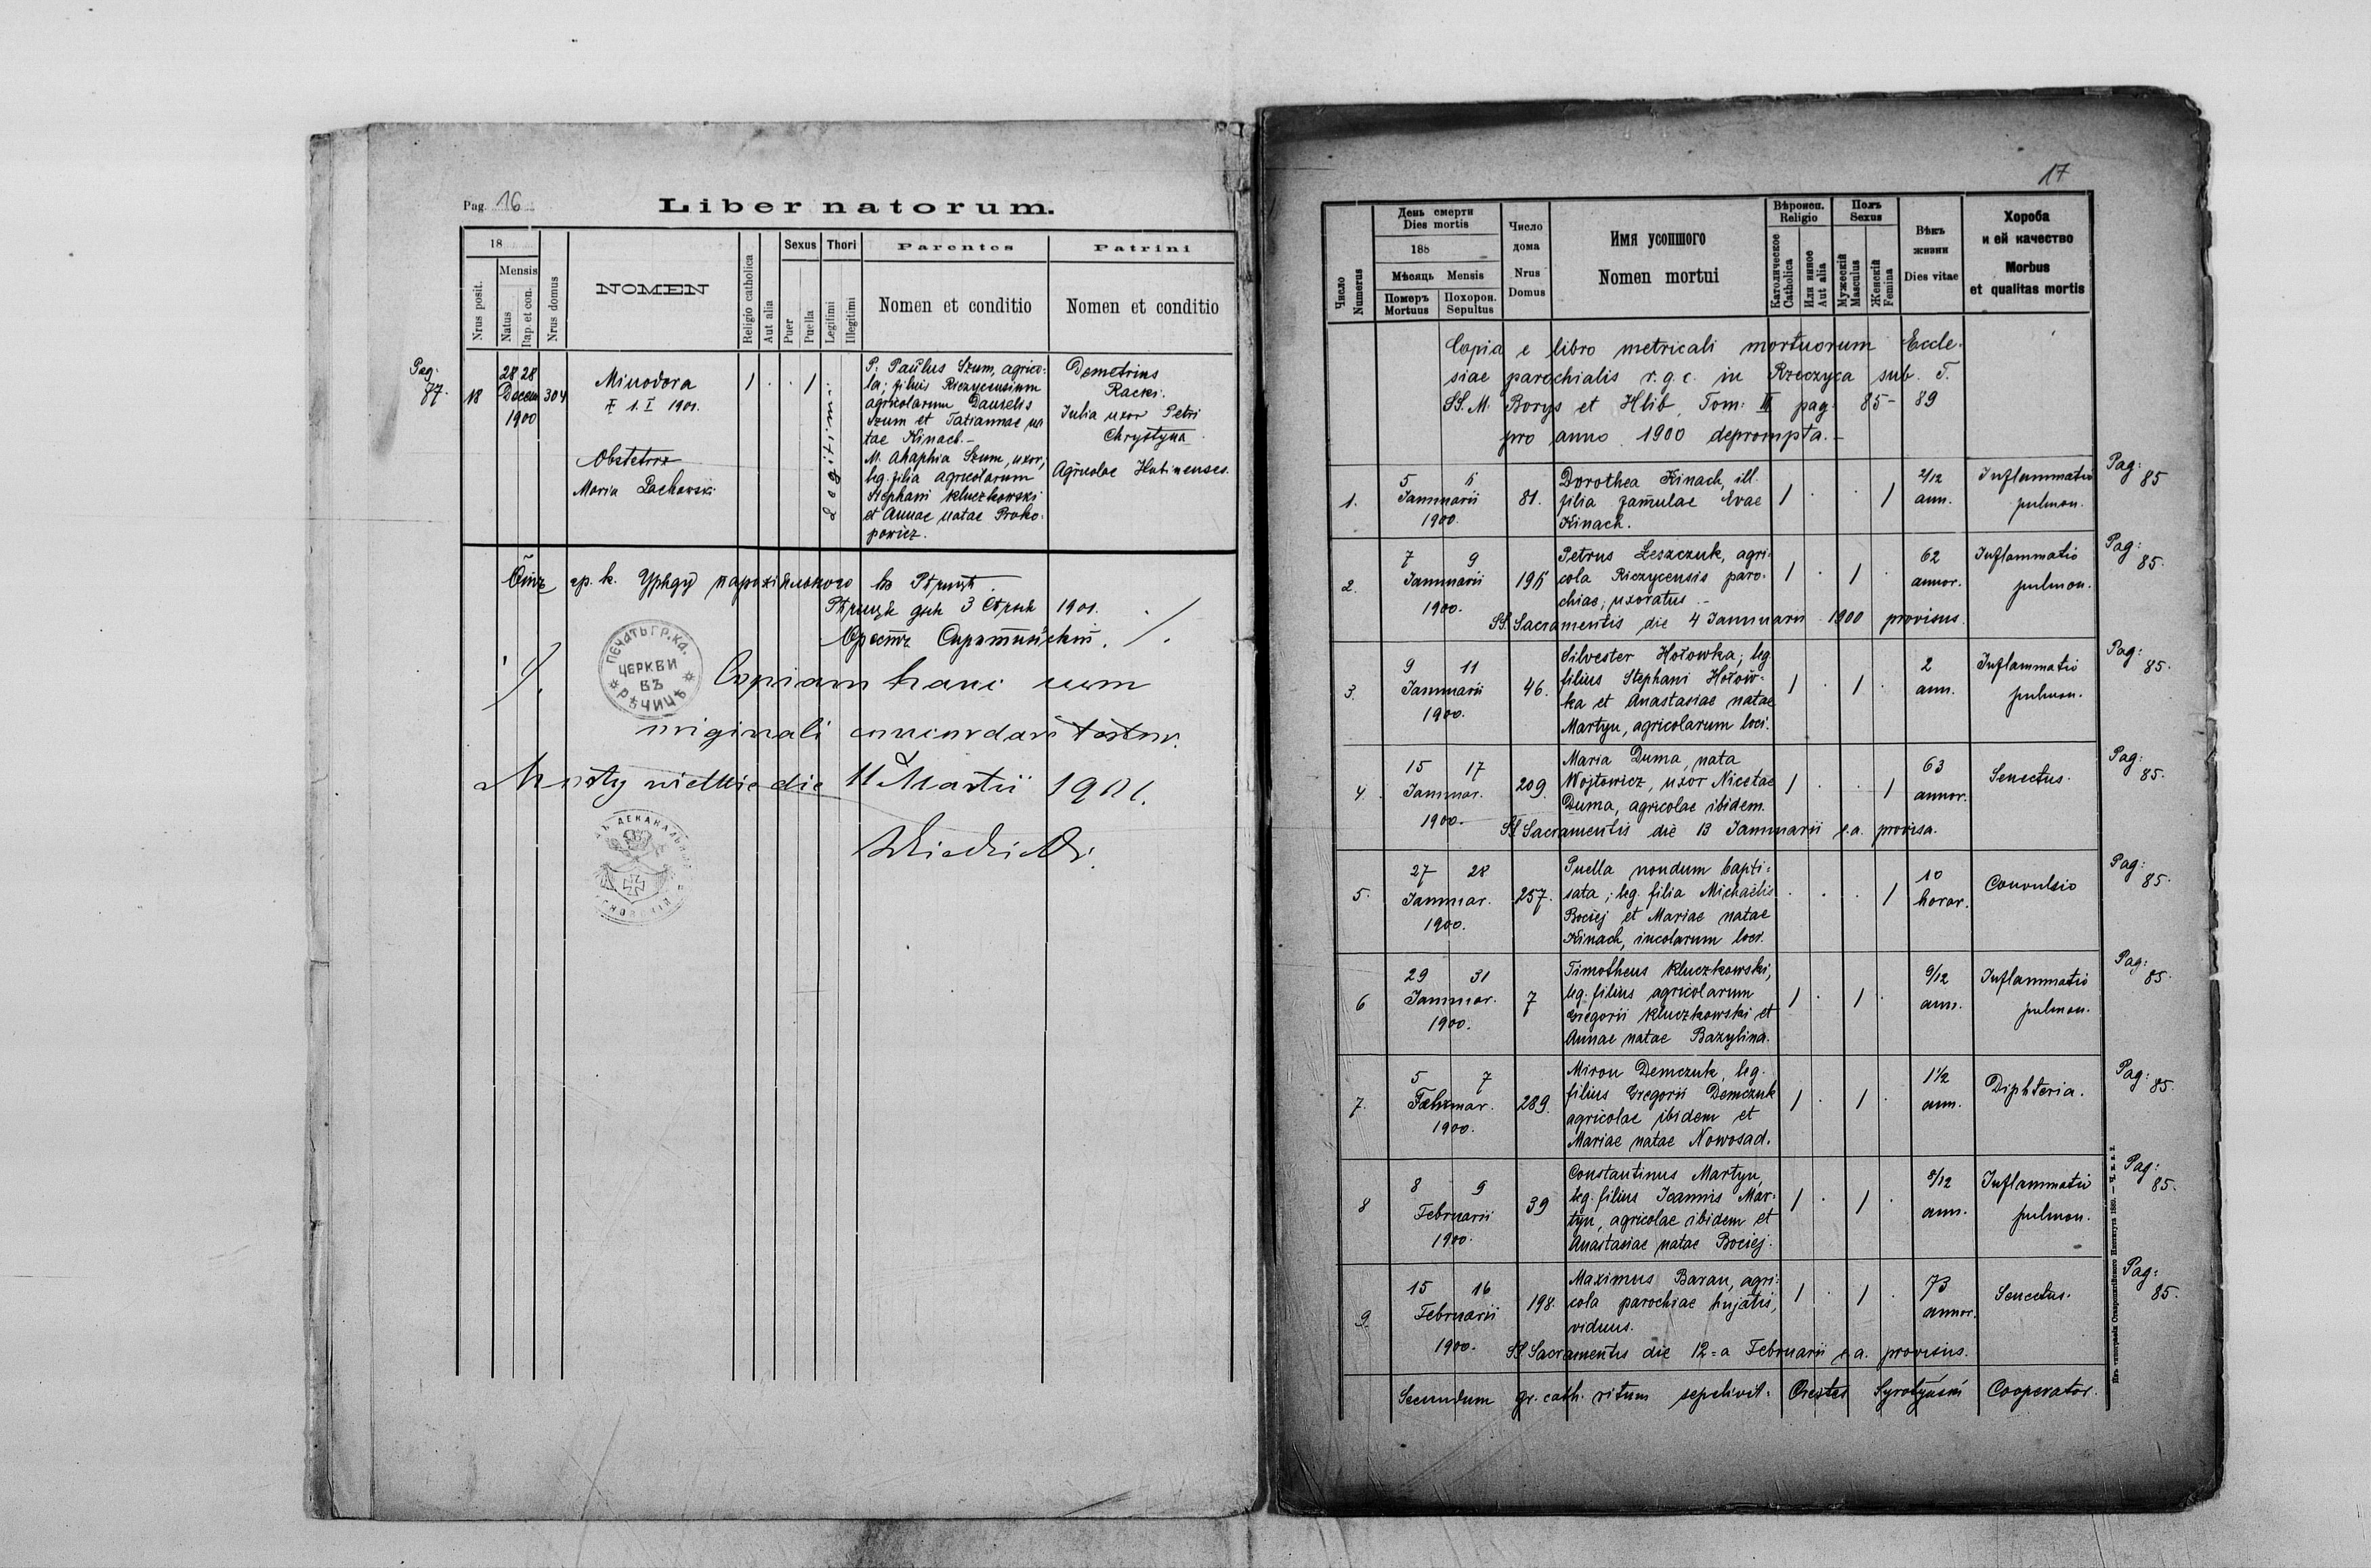 Pag. 16
Liber natorum.
18
Nrus posit.
Mensis
Natus
Bap. et con.
Nrus domus
NOMEN
Religio catholica
Aut alia
Sexus
Puer
Puella
Thori
Legitimi
Illegitimi
Parentes
Nomen et conditio
Patrini
Nomen et conditio
Pag:
77.
18
28 28
Decem
1900
304
Minodora
† 1. I 1901.
Obstetrix
Maria Pachowski
1 . . 1
Legitimi.
P. Paulus Szum, agrico-
la; filius Rieczycensium
agricolarum Danielis
Szum et Tatiannae na
tae Kinach.-
M. Ahaphia Szum, uxor,
leg. filia agricolarum
Stephani Kluczkowski
et Annae natae Proko-
powicz.
Demetrius
Racki.
Julia uxor Petri
Chrystyna.
Agricolae Hutinenses.
гр. к. Уряду парохіяльного
въ Рѣчици
Рѣчиця дня 3 1901.
ПЕЧАТЬ ГР.КА.
ЦЕРКВИ
ВЪ
РѢЧИЦѢ
Copiam hanc cum
originali concordare testor.
Mosty wielkie die 11 Martii 1901.
ДЕКАНАЛЬНЫЙ
17
Число
Numerus
День смерти
Dies mortis
188
Мѣсяць Mensis
Померъ
Mortuus
Похорон.
Sepultus
Число
дома
Nrus
Domus
Имя усопшого
Nomen mortui
Вѣроисп.
Religio
Католическое
Catholica
Или инное
Aut alia
Полъ
Sexus
Мужескій
Masculus
Женскій
Femina
Вѣкъ
жизни
Dies vitae
Хороба
и ей качество
Morbus
et qualitas mortis
Copia e libro metricali mortuorum Eccle-
siae parochialis r. g. c. in Rzeczyca sub. T.
SS. M. Borys et Hlib, Tom: III pag: 85 - 89
pro anno 1900 deprompta.-
1.
5
Januarii
1900.
81.
Dorothea Kinach, ill.
filia famulae Evae
Kinach.
1 . . 1
2/12
ann.
Inflammatio
pulmon.
Pag:
85
2.
7 9
Januarii
1900.
195
Petrus Leszczuk, agri-
cola Rieczycensis paro-
chiae; uxoratus.-
SS. Sacramentis die 4 Januarii 1900 provisus.
1 . 1 .
62
annor.
Inflammatio
pulmon.
Pag:
85.
3.
9 11
Januarii
1900.
46.
Silvester Hołowka; leg
filius Stephani Hołow-
ka et Anastasiae natae
Martyn, agricolarum loci.
1 . 1 .
2
ann.
Inflammatio
pulmon.
Pag:
85.
4.
15 17
Januar.
1900.
209.
Maria Duma, nata
Wojtowicz, uxor Nicetae
Duma, agricolae ibidem.
SS. Sacramentis die 13 Januarii e. a. provisa.
1 . . 1
63
annor.
Senectus.
Pag:
85.
5.
27 28
Januar.
1900.
257.
Puella nondum bapti-
sata; leg. filia Michaëlis
Bociej et Mariae natae
Kinach, incolarum loci.
. . . 1
10
horar.
Convulsio
Pag:
85.
6
29 31
Januar.
1900.
7
Timotheus Kluczkowski,
leg. filius agricolarum
Gregorii Kluczkowski et
Annae natae Bazylina.
1 . 1 .
9/12
ann.
Inflammatio
pulmon.
Pag:
85.
7.
5 7
Februar.
1900.
289.
Miron Demczuk, leg.
filius Gregorii Demczuk
agricolae ibidem et
Mariae natae Nowosad.
1 . 1 .
1 1/2
ann.
Diphteria.
Pag:
85.
8
8 9
Februarii
1900.
39
Constantinus Martyn,
leg. filius Ioannis Mar-
tyn, agricolae ibidem et
Anastasiae natae Bociej.
1 . 1 .
8/12
ann.
Inflammatio
pulmon.
Pag:
85.
9.
15 16
Februarii
1900.
198.
Maximus Baran, agri-
cola parochiae hujatis,
viduus.
SS. Sacramentis die 12-a Februarii e. a. provisus.
1 . 1 .
73
annor.
Senectus.
Pag:
85.
Secundum gr. cath. ritum sepelivit: Orestes Syrotyński Cooperator.
Изъ типографіи Ставропигійского Института 1880.